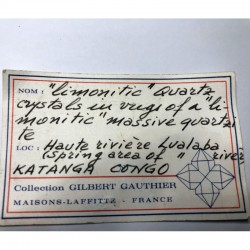 NOM : "limonitic" Quartz
crystals in vugs of a "li
monitic" massive quartzi
te
LOC : Haute rivière Lualaba
(spring area of " river
KATANGA CONGO
Collection GILBERT GAUTHIER
MAISONS-LAFFITTE - FRANCE